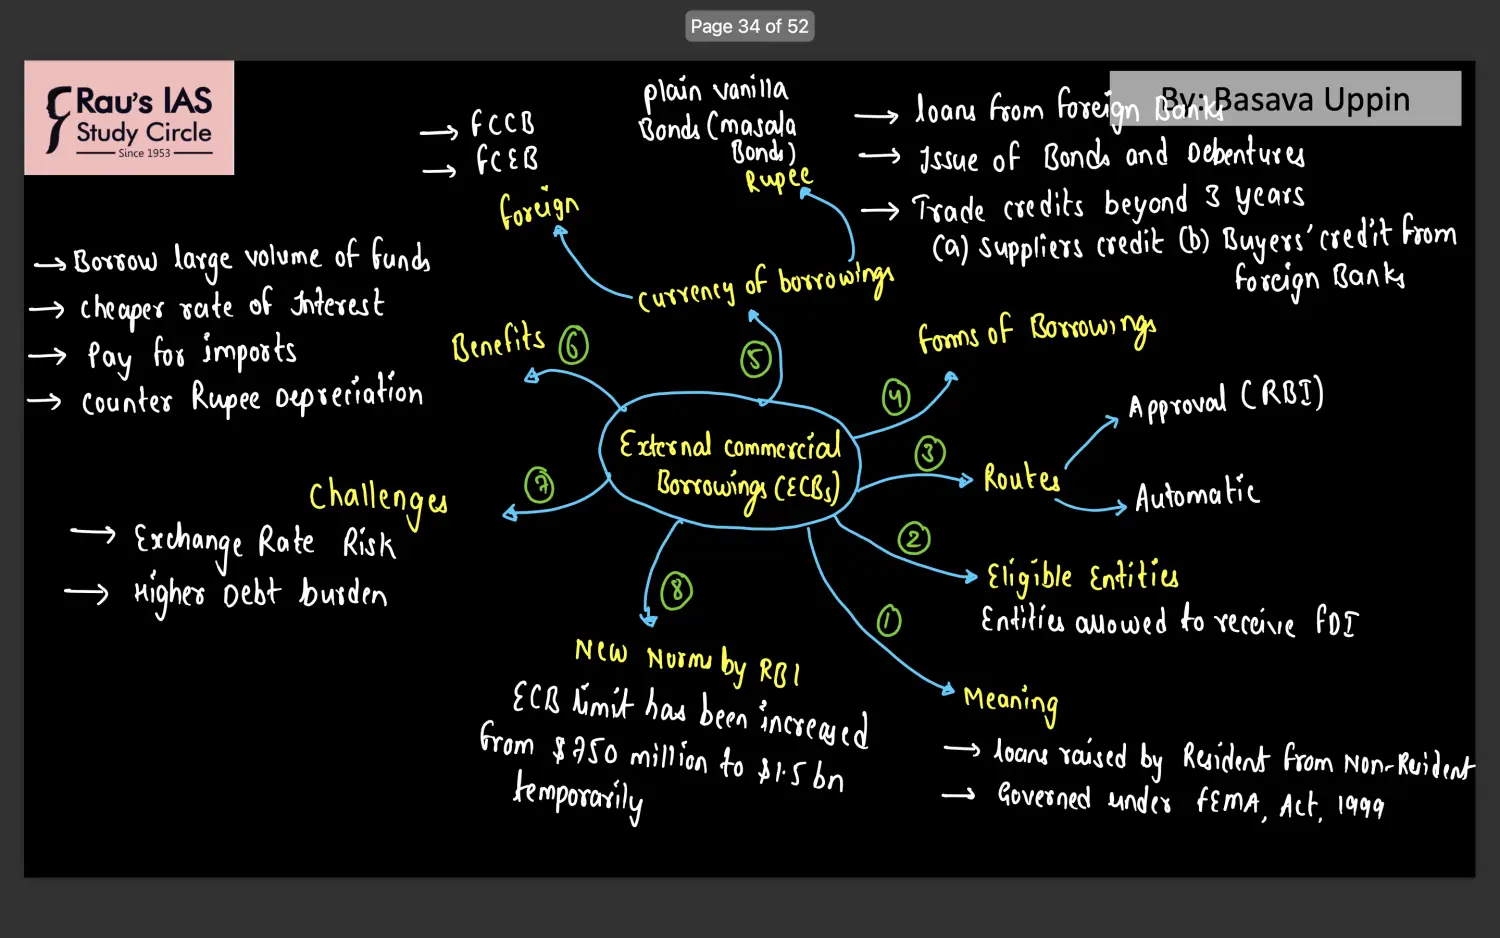 Page 34 of 52
Rau's IAS
Study Circle
Since 1953
By: Basava Uppin
External commercial
Borrowings (ECBs)
1
Meaning
→ loans raised by Resident from Non-Resident
→ Governed under FEMA, Act, 1999
2
Eligible Entities
Entities allowed to receive FDI
3
Routes
Approval (RBI)
Automatic
4
forms of Borrowings
→ loans from foreign Banks
→ Issue of Bonds and Debentures
→ Trade credits beyond 3 years
(a) suppliers credit (b) Buyers' credit from
foreign Banks
5
currency of borrowings
foreign
→ FCCB
→ FCEB
Rupee
plain vanilla
Bonds (masala
Bonds)
6
Benefits
→ Borrow large volume of funds
→ cheaper rate of Interest
→ Pay for imports
→ counter Rupee Depreciation
7
Challenges
→ Exchange Rate Risk
→ Higher Debt burden
8
New Norms by RBI
ECB limit has been increased
from $750 million to $1.5 bn
temporarily